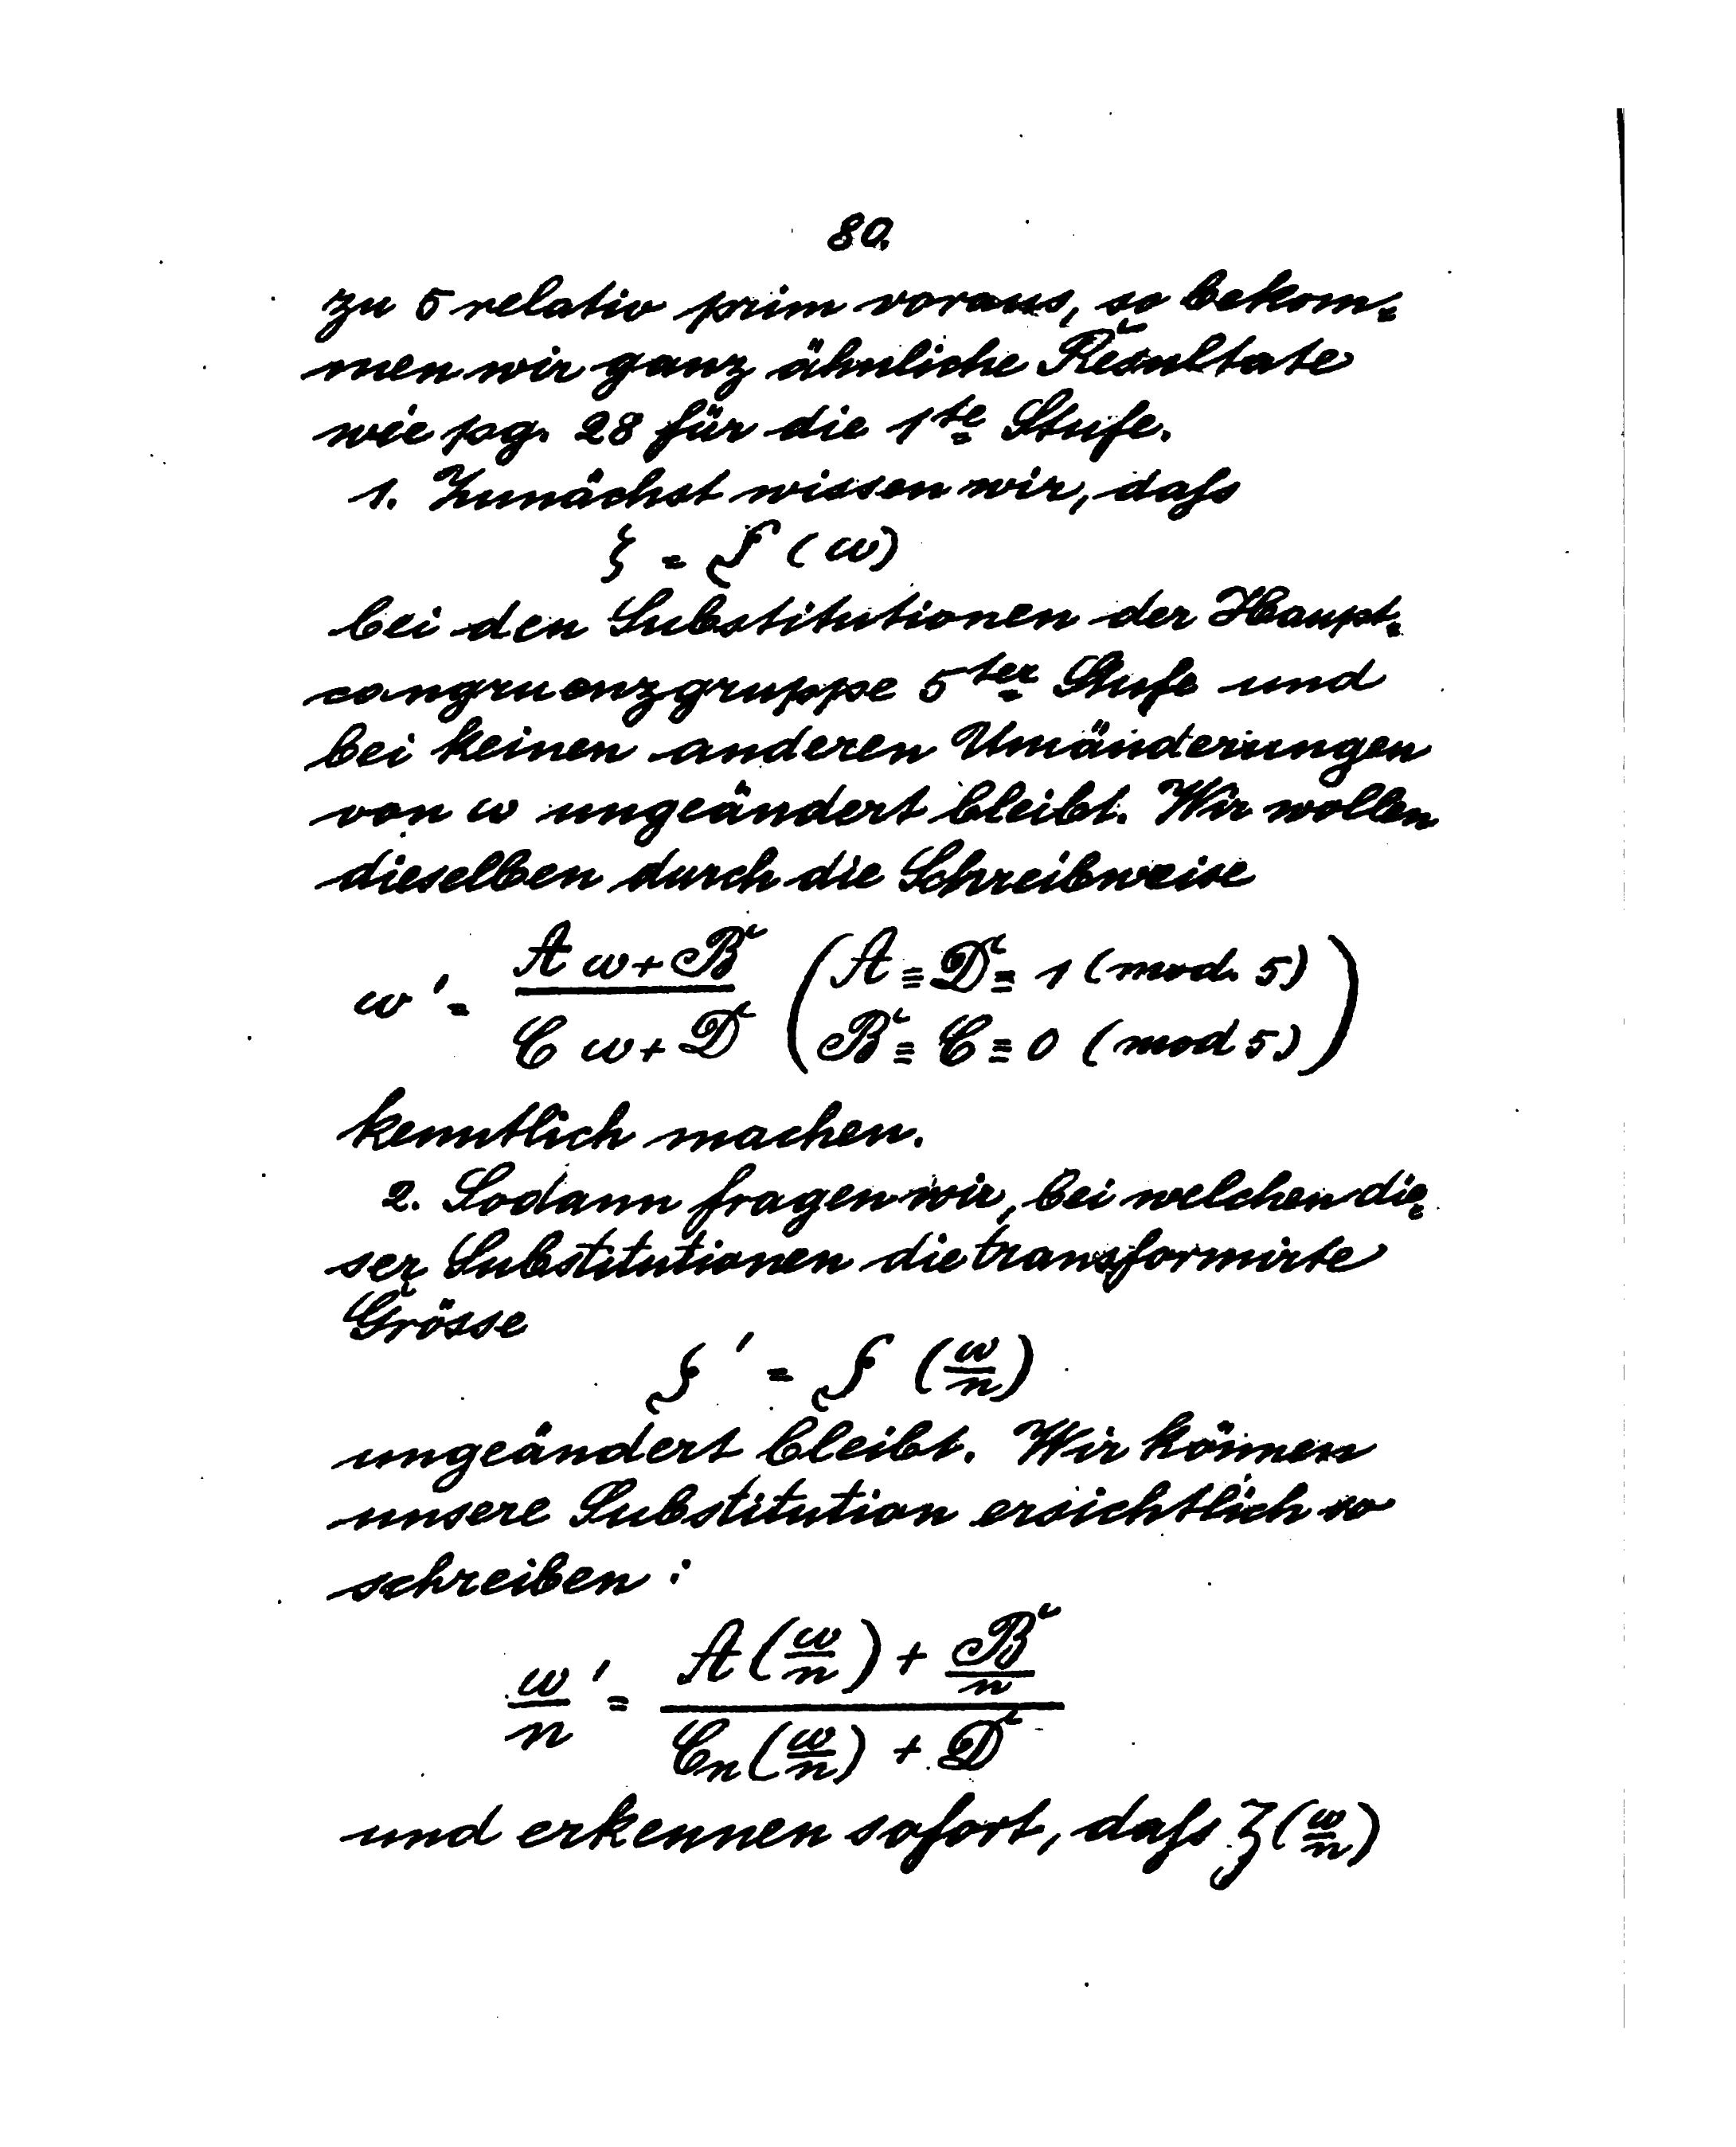 80.
zu 5 relativ prim voraus, so bekom=
men wir ganz ähnliche Resultate
wie pag. 28 für die 1te Stufe.
1. Zunächst wissen wir, daſs
ζ = f (ω)
bei den Substitutionen der Haupt=
congruenzgruppe 5ter Stufe und
bei keinen anderen Umänderungen
von ω ungeändert bleibt. Wir wollen
dieselben durch die Schreibweise
ω' = (A ω + B)/(C ω + D) (A ≡ D ≡ 1 (mod. 5) B ≡ C ≡ 0 (mod 5))
kenntlich machen.
2. Sodann fragen wir, bei welchen die=
ser Substitutionen die transformirte
Grösse
ζ' = f (ω/n)
ungeändert bleibt. Wir können
unsere Substitution ersichtlich so
schreiben:
ω'/n = (A(ω/n) + B/n)/(Cn(ω/n) + D)
und erkennen sofort, daſs ζ(ω/n)